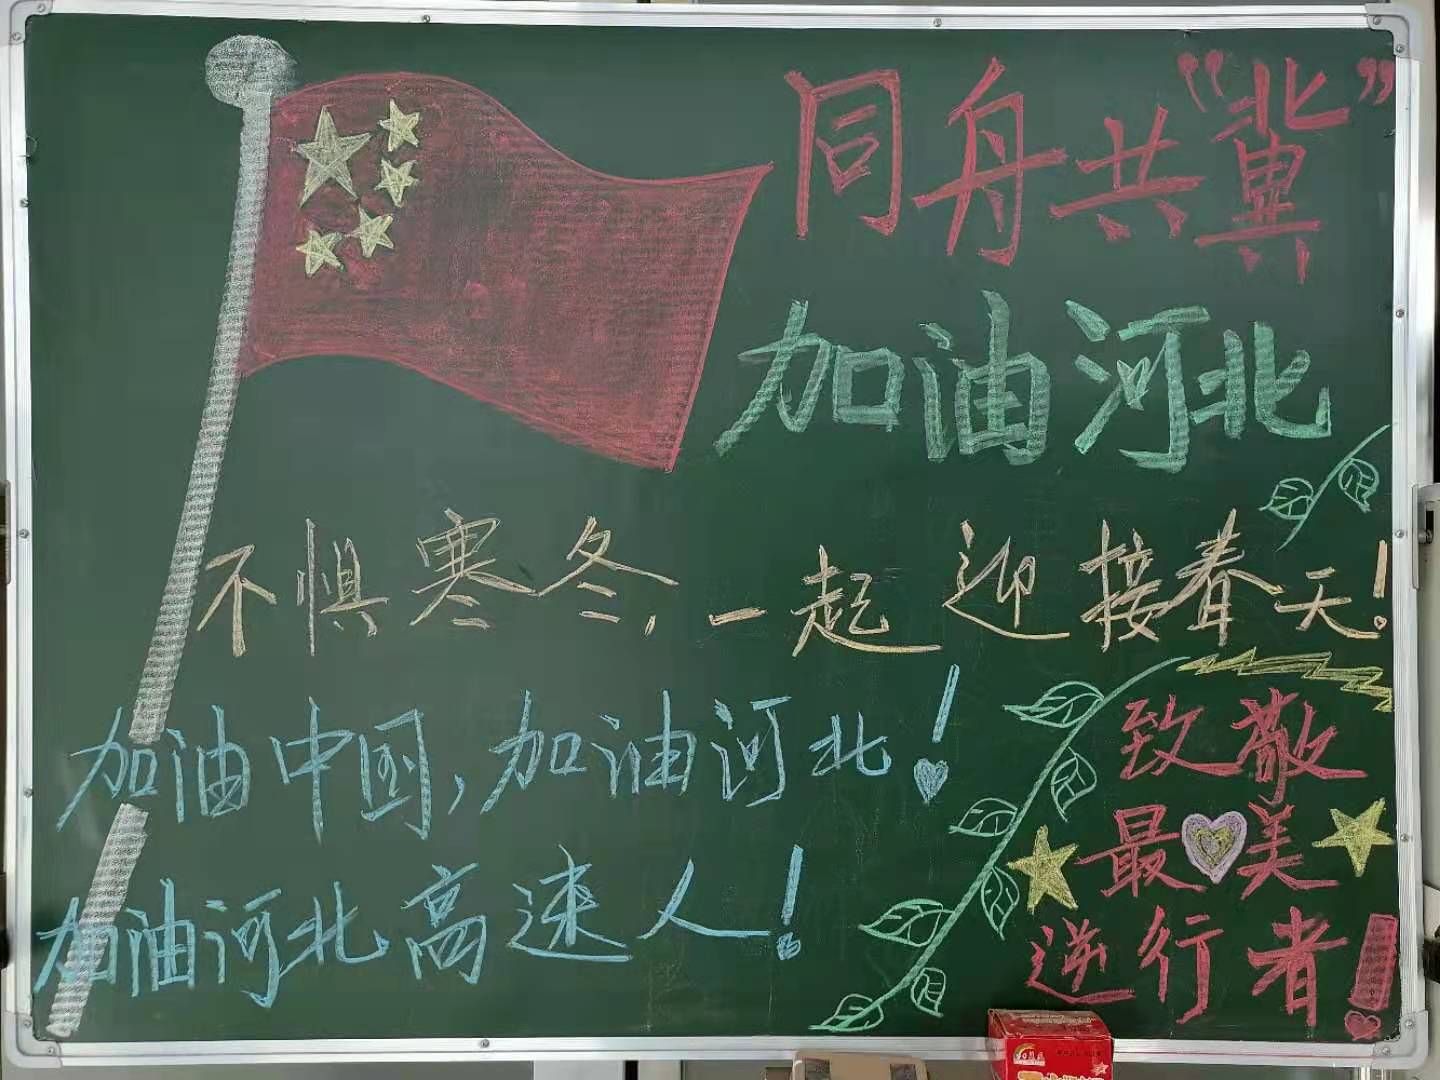 同舟共“冀”
加油河北
不惧寒冬，一起迎接春天！
加油中国，加油河北！
加油河北高速人！
致敬
最美
逆行者！